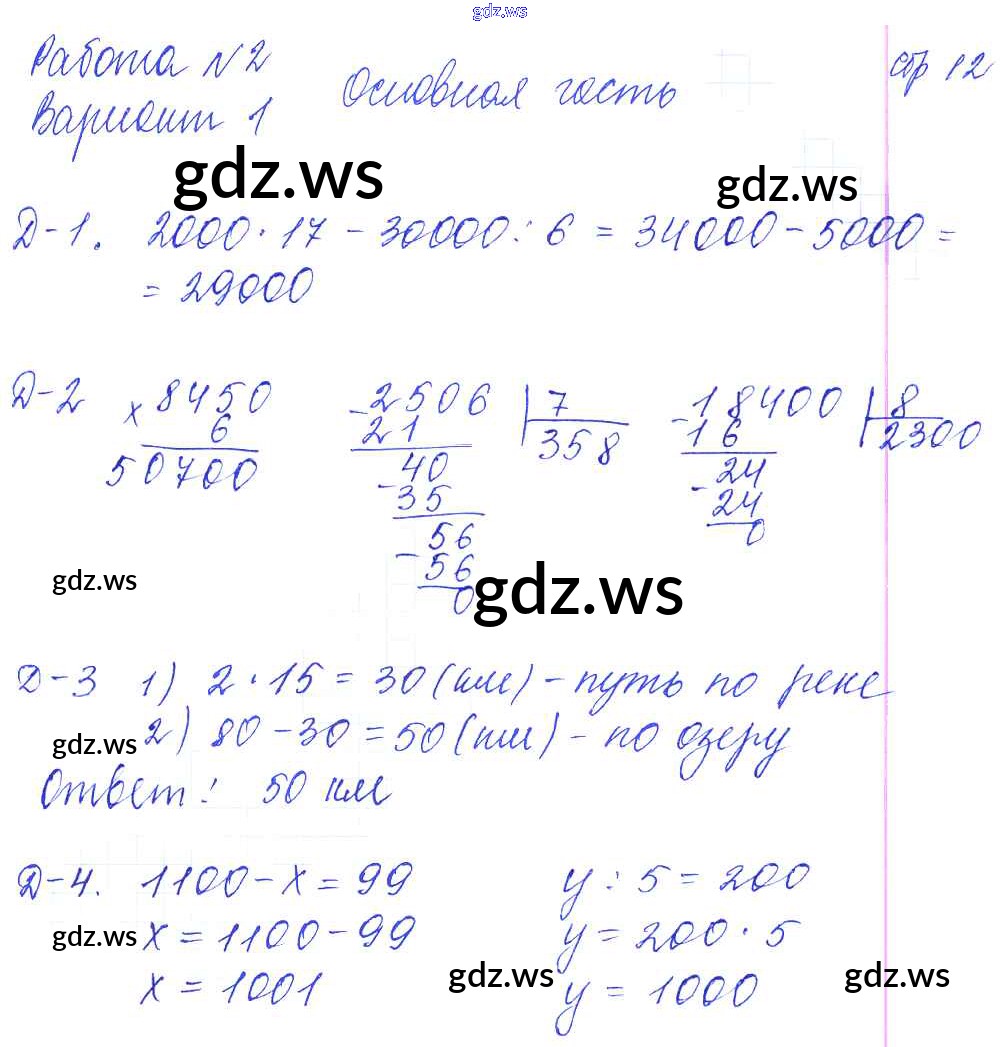 gdz.ws
Работа №2
Основная часть
стр 12
Вариант 1
gdz.ws
gdz.ws
Д-1. 2000·17 - 30000:6 = 34000 - 5000 =
= 29000
Д-2
× 8450
6
50700
- 2506 | 7
21 358
40
- 35
56
- 56
0
- 18400 | 8
16 2300
24
- 24
0
gdz.ws
gdz.ws
Д-3 1) 2·15 = 30 (км) - путь по реке
gdz.ws
2) 80 - 30 = 50 (км) - по озеру
Ответ: 50 км
Д-4. 1100 - x = 99
x = 1100 - 99
x = 1001
y : 5 = 200
y = 200·5
y = 1000
gdz.ws
gdz.ws
gdz.ws